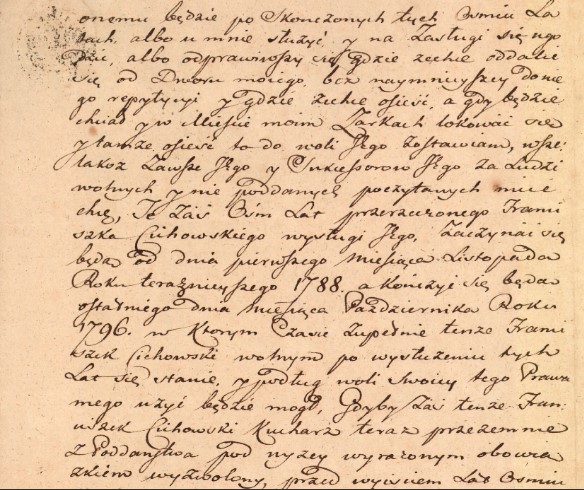 onemu będzie po Skończonych tych Ośmiu La
tach, albo u mnie służyć y na Zasługi się ugo
dzić, albo odprawiwszy się gdzie zechce oddalić
się od Dworu moiego, bez naymnieyszey do nie
go repetycyi y gdzie zechce osieść, a gdy będzie
chciał y w Mieście moim Zarkach lokować się
y tamże osieść to do woli Jego zostawiam, wsze=
lakoż Zawsze Jego y Sukcessorow Jego za Ludzi
wolnych y nie poddanych poczytanych mieć
chcę, Te Zaś Ośm Lat przerzeczonego Franci
szka Cichowskiego wysługi Jego, zaczynać się
będą od dnia pierwszego Miesiąca Listopada
Roku teraznieyszego 1788. a kończyć się będą
ostatniego dnia Miesiąca Października Roku
1796. w Ktorym Czasie zupełnie tenże Franci
szek Cichowski wolnym po wysłużeniu tych
Lat się stanie, y podług woli Swoiey tego Prawa
mego użyć będzie mogł, Gdyby Zaś tenże Fran=
ciszek Cichowski Kucharz teraz przezemnie
z Poddaństwa pod nyżey wyrażonym obowią
zkiem wyzwolony, przed wyiściem Lat Ośmiu